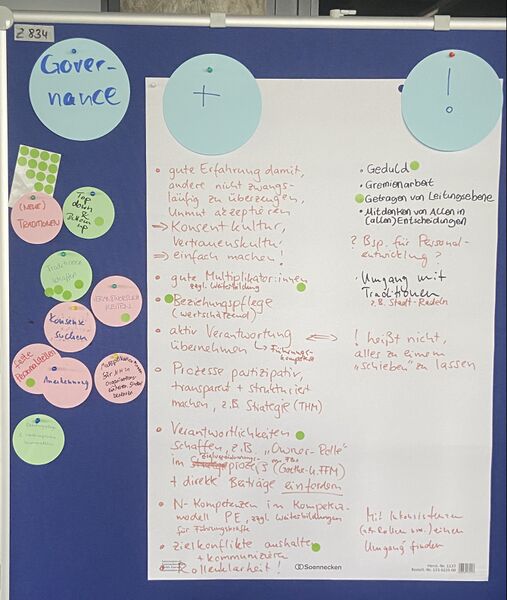 2834
Gover-
nance
+
!
(NEUE)
TRADITIONEN
Top
down
&
Bottom
up
Traditionen
schaffen
Konsense
suchen
feste
Personalstellen
Anerkennung
• gute Erfahrung damit,
andere nicht zwangs-
läufig zu überzeugen,
Unmut akzeptieren
⇒ Konsentkultur,
Vertrauenskultur
⇒ einfach machen!
• gute Multiplikator:innen
zzgl. Weiterbildung
• Beziehungspflege
(wertschätzend)
• aktiv Verantwortung
übernehmen ↳ Führungs-
• Prozesse partizipativ,
transparent + strukturiert
machen, z.B. Strategie (THM)
• Verantwortlichkeiten
schaffen, z.B. „Owner-Rolle"
im prozess (Goethe-U. FFM)
+ direkte Beiträge einfordern
• N-Kompetenzen im Kompetenz-
modell PE, zzgl. Weiterbildungen
für Führungskräfte
• Zielkonflikte aushalten
+ kommunizieren
Rollenklarheit!
• Geduld
• Gremienarbeit
• Getragen von Leitungsebene
• Mitdenken von Allen in
(allen) Entscheidungen
? Bsp. für Personal-
entwicklung ?
• Umgang mit
Traditionen
z.B. Stadt-Radeln
⇔ ! heißt nicht,
alles zu einem
„schieben" zu lassen
Mit
einen
Umgang finden
Soennecken